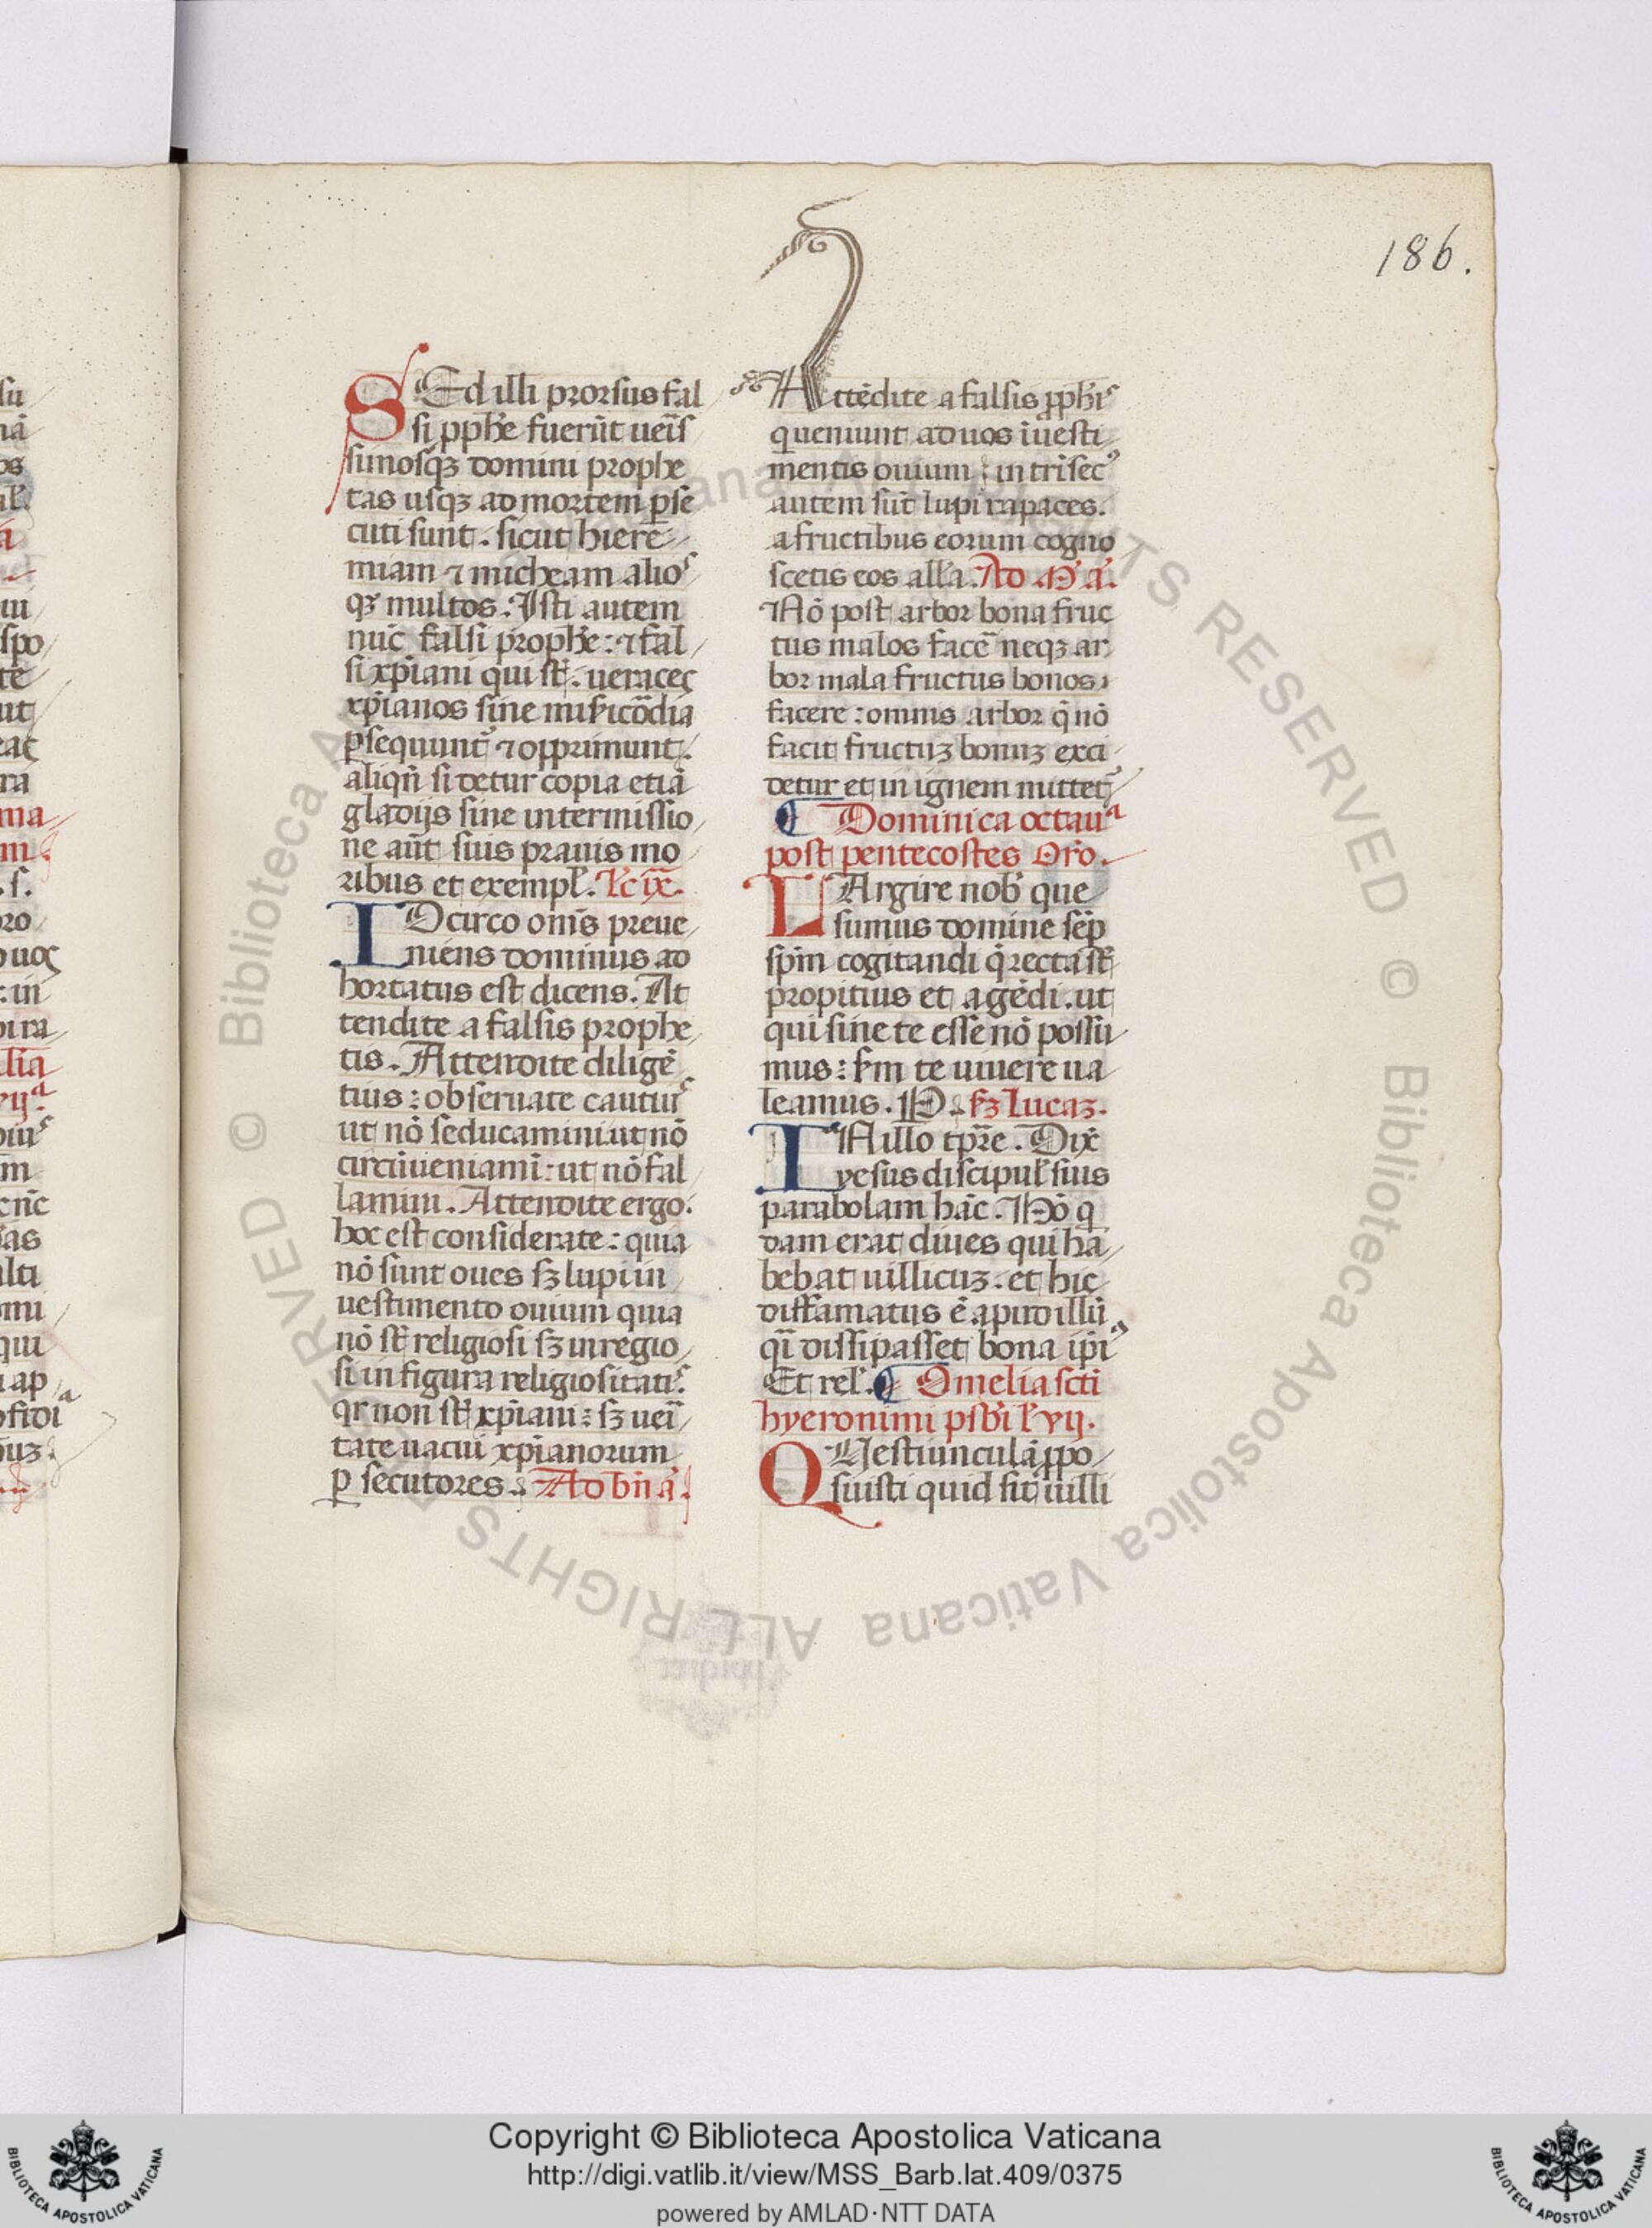 186.
SEd illi prorsus fal
si pp̄he fuerūt ueīs
simosqꝫ domini prophe
tas usqꝫ ad mortem ꝑse
cuti sunt. sicut hiere
miam ⁊ micheam alios
qꝫ multos. Isti autem
nūc falsi prophe: ⁊ fal
si xp̄iani qui st̄. ueraces
xp̄ianos sine mīsicōdia
ꝑsequunt᷑ ⁊ opprimunt.
aliqn̄ si detur copia etiā
gladijs sine intermissio
ne aūt suis prauis mo
ribus et exempl̄. Lc̄ ix.
IDcirco om̄s preue
niens dominus ad
hortatus est dicens. At
tendite a falsis prophe
tis. Attendite diligē
tius: obseruate cautius
ut nō seducamini. ut nō
circūueniamī: ut nō fal
lamini. Attendite ergo.
hoc est considerate: quia
nō sunt oues sꝫ lupi in
uestimento ouium quia
nō st̄ religiosi sꝫ inregio
si in figura religiositatis.
qr non st̄ xp̄iani: sꝫ ueī
tate uacui xp̄ianorum
ꝑsecutores. Ad bn̄ ā.
Attēdite a falsis ꝓphis
queniunt ad uos ī uesti
mentis ouium: intrisecꝰ
autem sūt lupi rapaces.
a fructibus eorum cogno
scetis eos all̄a. Ad M̄ ā.
Nō post arbor bona fruc
tus malos facē neqꝫ ar
bor mala fructus bonos
facere: omnis arbor q̄ nō
facit fructuꝫ bonuꝫ exci
detur et in ignem mittet᷑
¶ Dominica octaua
post pentecostes Oro.
LArgire nob̄ que
sumus domine sēp
sp̄m cogitandi q̄ recta st̄
propitius et agēdi. ut
qui sine te esse nō possu
mus: scd̄m te uiuere ua
leamus. P. sꝫ Lucaꝫ.
IN illo tp̄re. Dix̄
yesus discipul̄ suis
parabolam hāc. Hō q
dam erat diues qui ha
bebat uillicuꝫ. et hic
diffamatus ē apud illū
q̄ dissipasset bona ip̄iꝰ
Et rel̄. ¶ Omelia sc̄ti
hyeronimi psb̄i l̄ vij.
QUestiunculā ꝓpo
suisti quid sit uilli
Copyright © Biblioteca Apostolica Vaticana
http://digi.vatlib.it/view/MSS_Barb.lat.409/0375
powered by AMLAD·NTT DATA